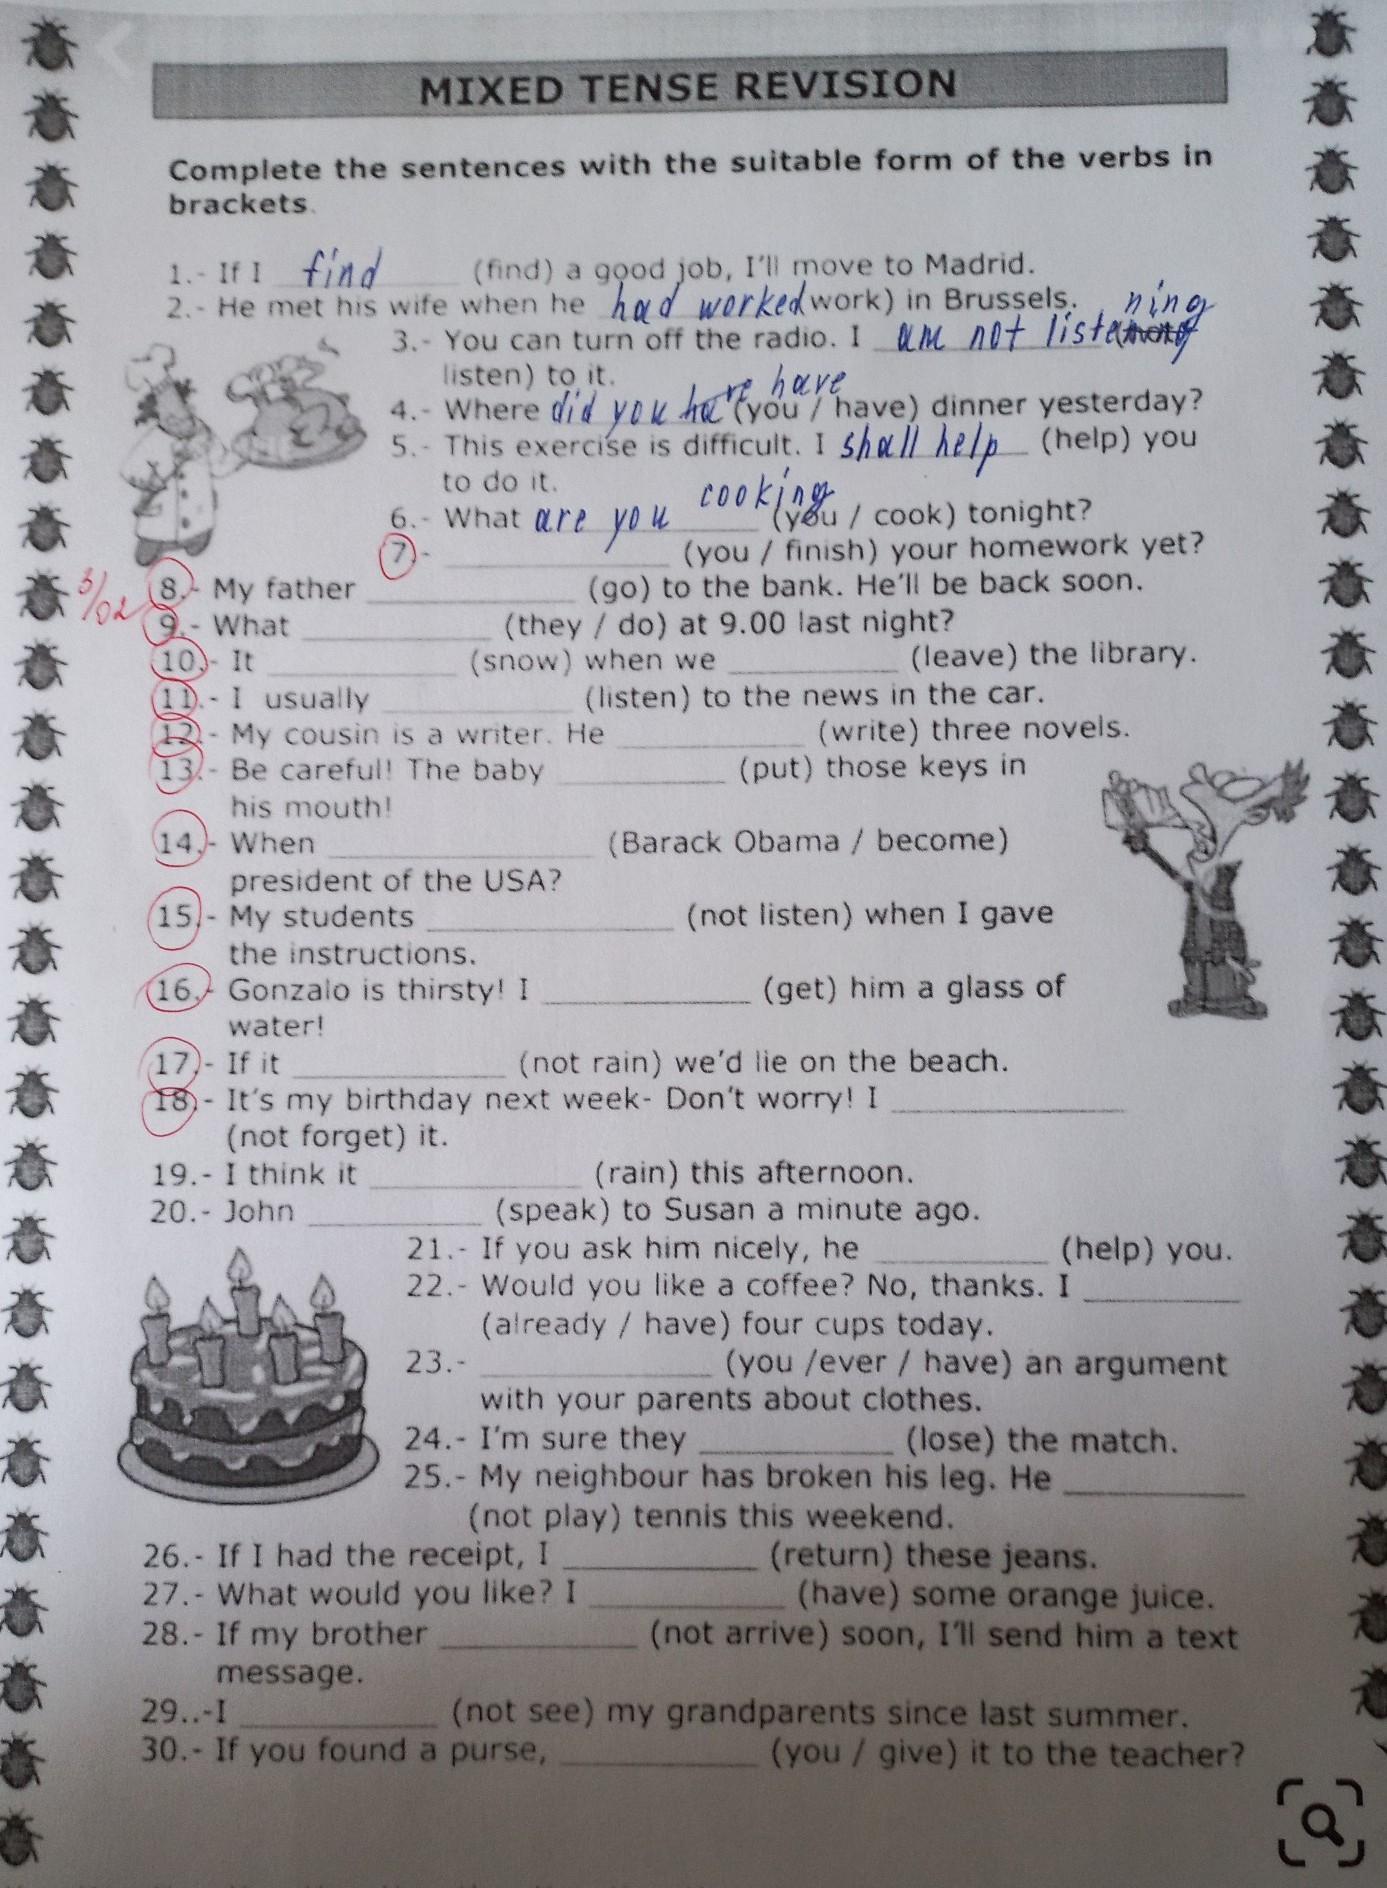 MIXED TENSE REVISION
Complete the sentences with the suitable form of the verbs in
brackets.
1.- If I find (find) a good job, I'll move to Madrid.
2.- He met his wife when he had worked work) in Brussels.
ning
3.- You can turn off the radio. I am not liste
listen) to it.
have
4.- Where did you have (you / have) dinner yesterday?
5.- This exercise is difficult. I shall help (help) you
to do it.
cooking
6.- What are you (you / cook) tonight?
7.- ____________ (you / finish) your homework yet?
3/02
8.- My father ____________ (go) to the bank. He'll be back soon.
9.- What ____________ (they / do) at 9.00 last night?
10.- It ____________ (snow) when we ____________ (leave) the library.
11.- I usually ____________ (listen) to the news in the car.
12.- My cousin is a writer. He ____________ (write) three novels.
13.- Be careful! The baby ____________ (put) those keys in
his mouth!
14.- When ____________ (Barack Obama / become)
president of the USA?
15.- My students ____________ (not listen) when I gave
the instructions.
16.- Gonzalo is thirsty! I ____________ (get) him a glass of
water!
17.- If it ____________ (not rain) we'd lie on the beach.
18.- It's my birthday next week- Don't worry! I ____________
(not forget) it.
19.- I think it ____________ (rain) this afternoon.
20.- John ____________ (speak) to Susan a minute ago.
21.- If you ask him nicely, he ____________ (help) you.
22.- Would you like a coffee? No, thanks. I ____________
(already / have) four cups today.
23.- ____________ (you /ever / have) an argument
with your parents about clothes.
24.- I'm sure they ____________ (lose) the match.
25.- My neighbour has broken his leg. He ____________
(not play) tennis this weekend.
26.- If I had the receipt, I ____________ (return) these jeans.
27.- What would you like? I ____________ (have) some orange juice.
28.- If my brother ____________ (not arrive) soon, I'll send him a text
message.
29..-I ____________ (not see) my grandparents since last summer.
30.- If you found a purse, ____________ (you / give) it to the teacher?